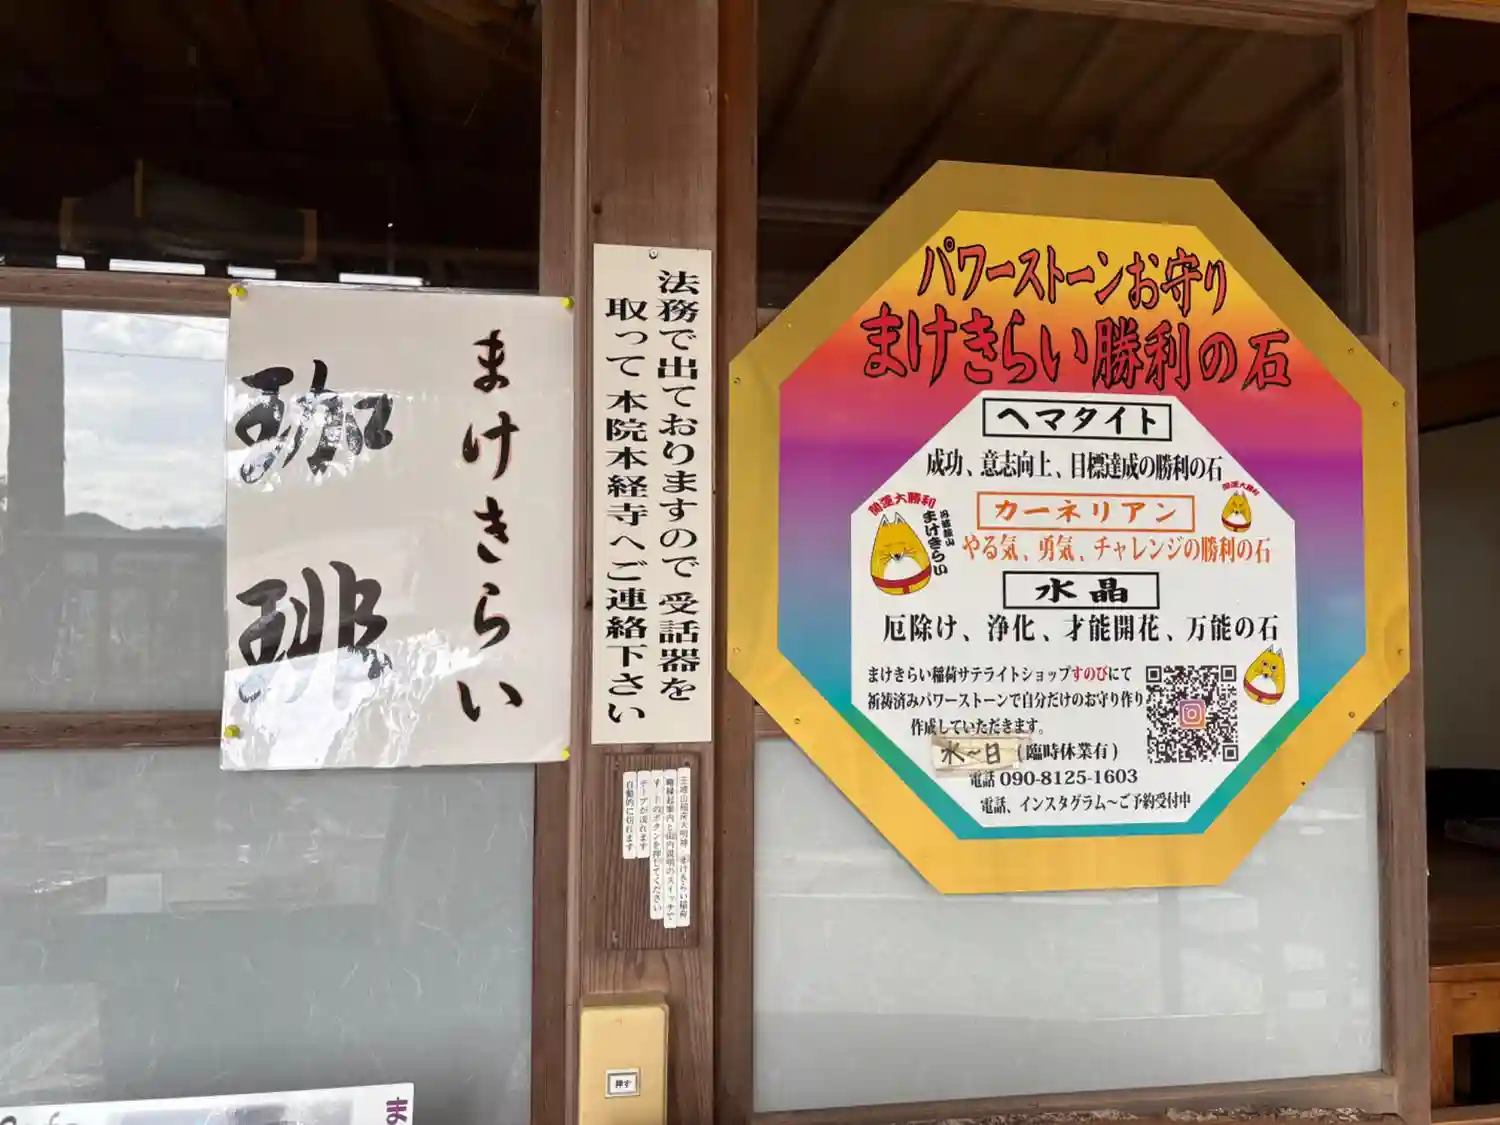 まけきらい
珈琲
法務で出ておりますので 受話器を
取って 本院本経寺へご連絡下さい
自動的に切れます
テープが流れます
押す
パワーストーンお守り
まけきらい勝利の石
ヘマタイト
成功、意志向上、目標達成の勝利の石
カーネリアン
やる気、勇気、チャレンジの勝利の石
水晶
厄除け、浄化、才能開花、万能の石
開運大勝利
まけきらい
開運大勝利
まけきらい稲荷サテライトショップすのびにて
祈祷済みパワーストーンで自分だけのお守り作り
作成していただきます。
水〜日(臨時休業有)
電話 090-8125-1603
電話、インスタグラム〜ご予約受付中
ま